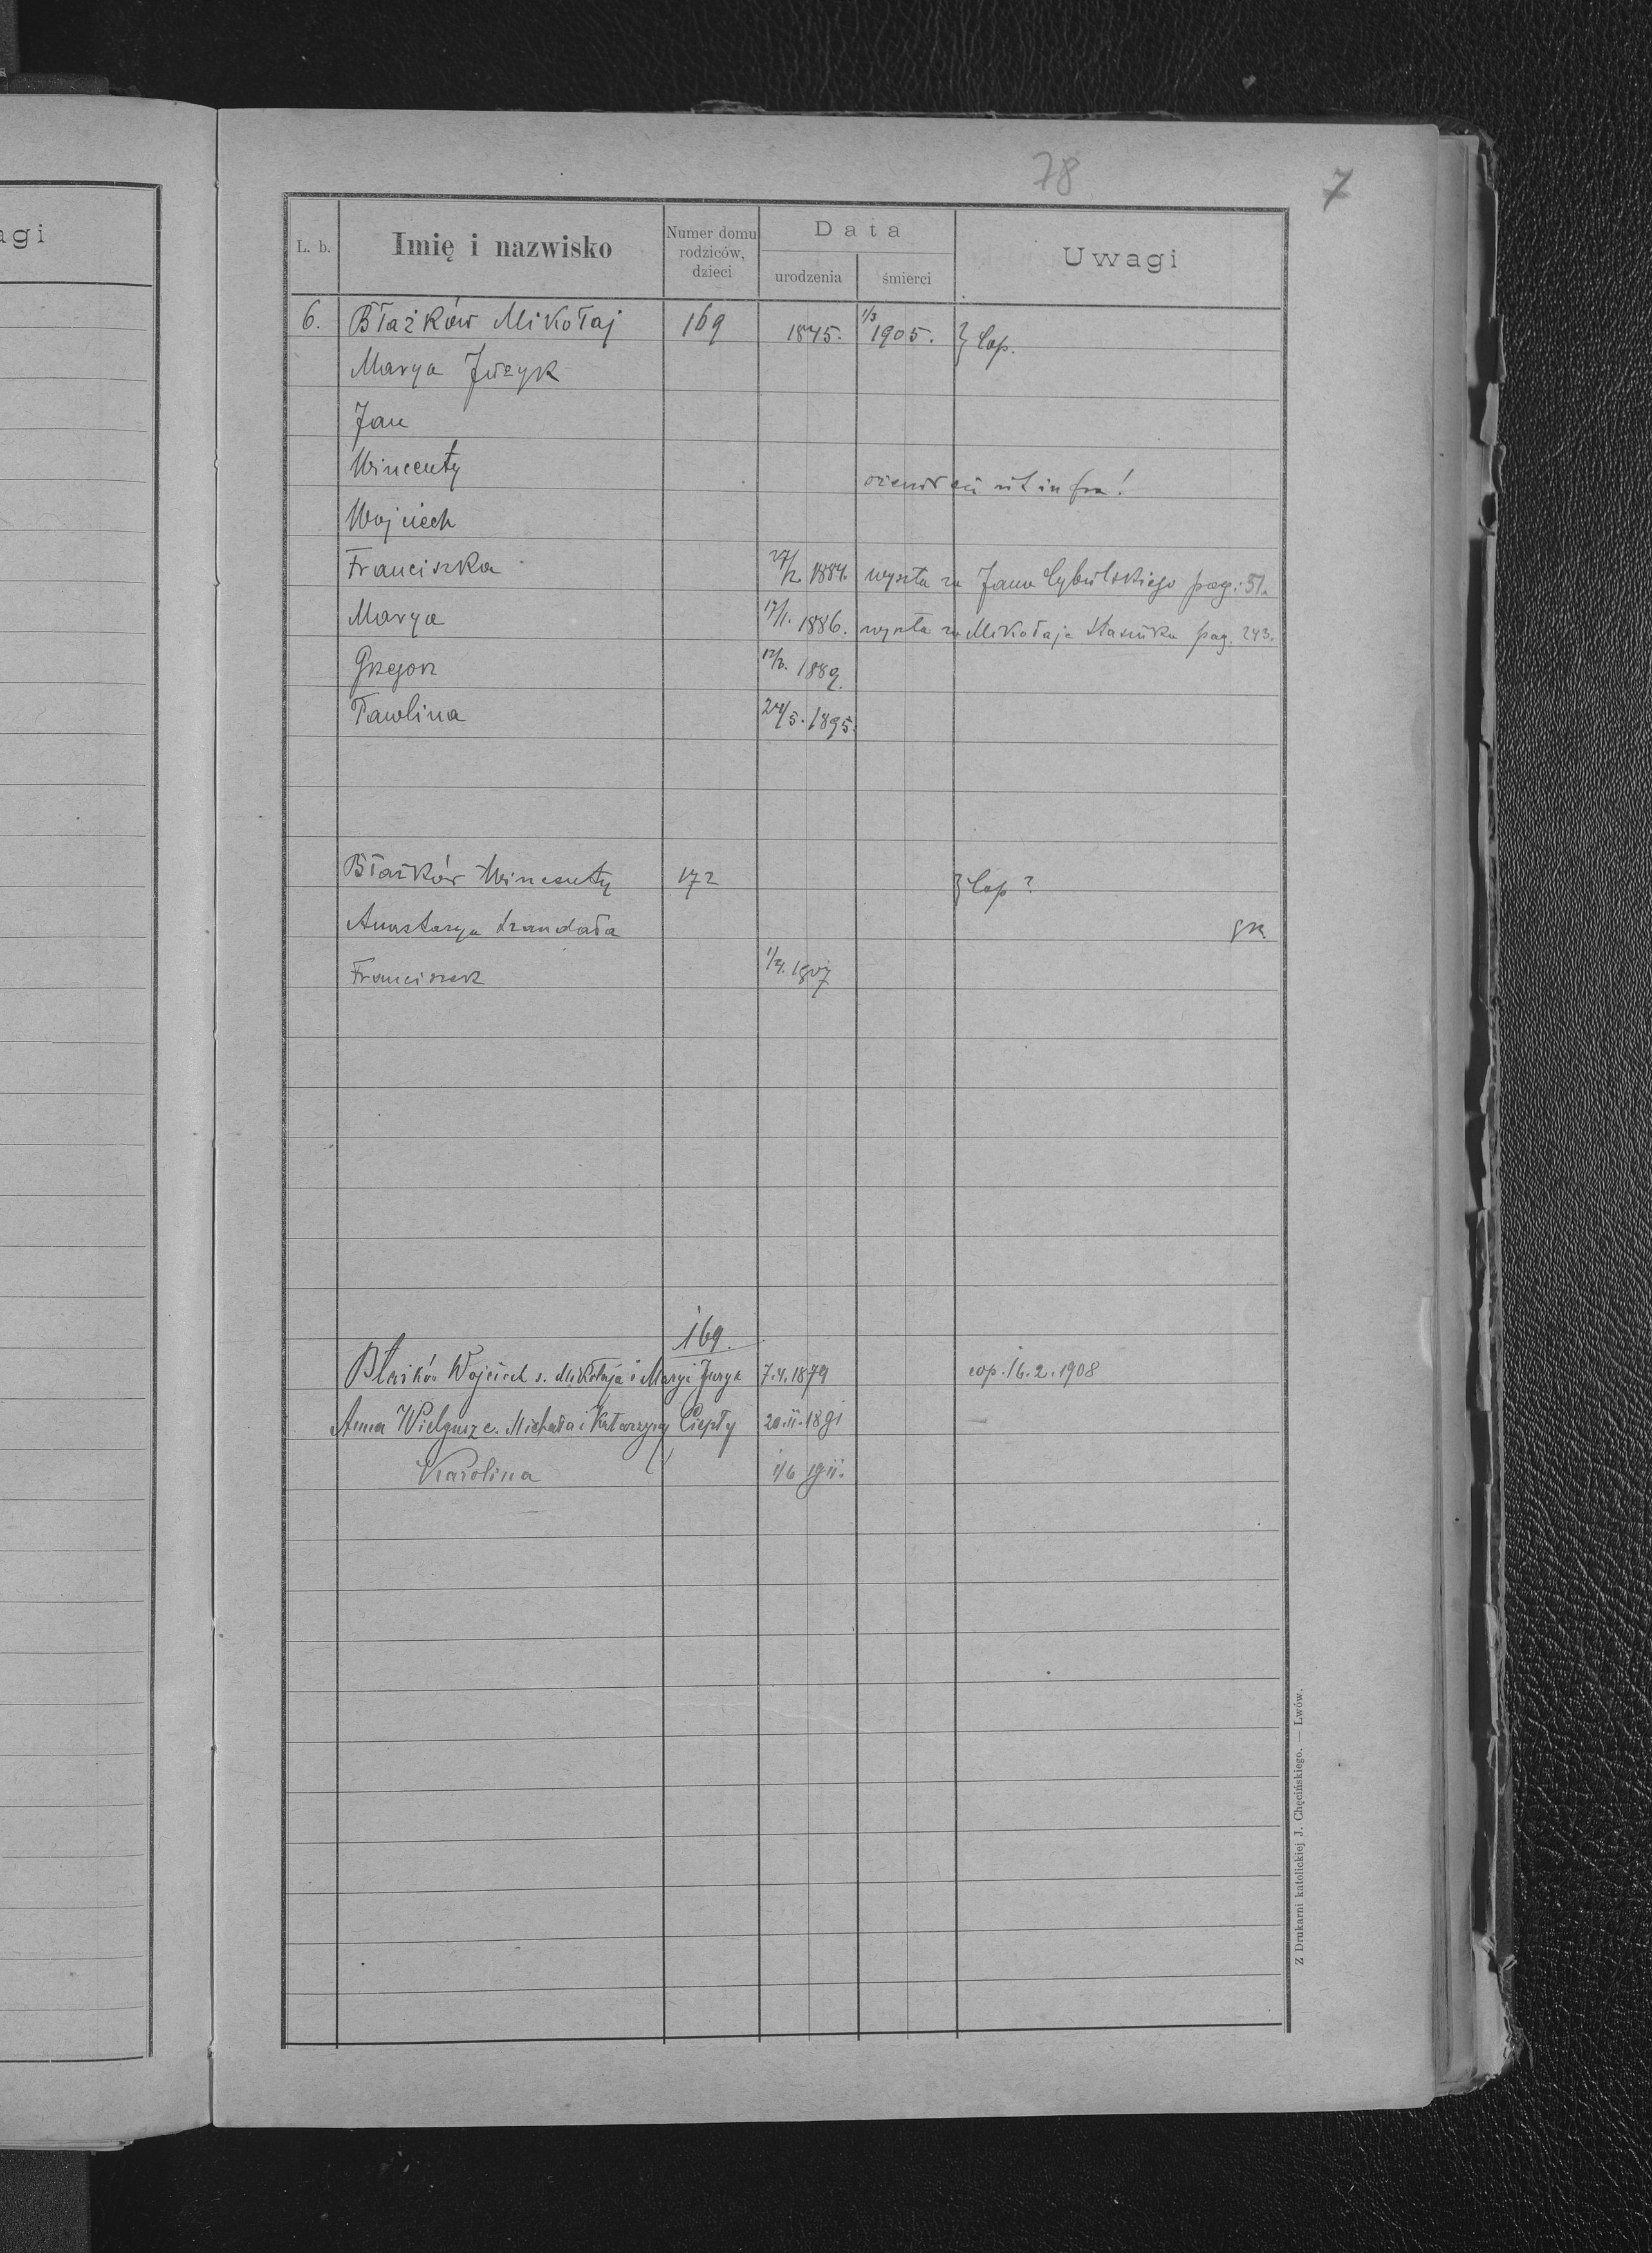 agi
78
7
L. b.
Imię i nazwisko
Numer domu rodziców, dzieci
Data
urodzenia
śmierci
Uwagi
6. Błażków Mikołaj 169 1845. 1/3 1905. } Cop.
Marya Juzyk
Jan
Wincenty ożenił się ut infra!
Wojciech
Franciszka 27/2. 1884. wyszła za Jana Cybulskiego pag: 51.
Marya 17/1. 1886. wyszła za Mikołaja Stasiuka pag. 243.
Grzegorz 12/2. 1889.
Pawlina 24/5. 1895.
Błażków Wincenty 172 } Cop?
Anastazya gk.
Franciszek 1/4. 1907
169.
Błażków Wojciech s. Mikołaja i Maryi Juzyk 7.4.1879 cop. 16.2.1908
Anna Wielgusz c. Michała i Katarzyny Ciepły 20.11.1891
Karolina 1/6 1911.
Z Drukarni katolickiej J. Chęcińskiego. — Lwów.